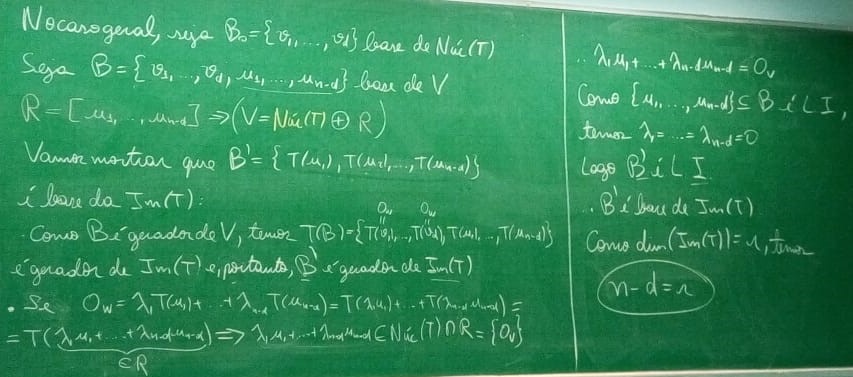 No caso geral, seja B₀={v₁,...,v_d} base de Núc(T)
Seja B={v₁,...,v_d, u₁,...,u_{n-d}} base de V
R=[u₁,...,u_{n-d}] ⇒ (V=Núc(T) ⊕ R)
Vamos mostrar que B'={T(u₁), T(u₂),...,T(u_{n-d})}
é base da Im(T):
0_w 0_w
. Como B é gerador de V, temos T(B)={T(v₁),...,T(v_d),T(u₁),...,T(u_{n-d})}
é gerador de Im(T) e, portanto, B' é gerador de Im(T)
. Se 0_w=λ₁T(u₁)+...+λ_{n-d}T(u_{n-d})=T(λ₁u₁)+...+T(λ_{n-d}u_{n-d})=
=T(λ₁u₁+...+λ_{n-d}u_{n-d}) ⇒ λ₁u₁+...+λ_{n-d}u_{n-d} ∈ Núc(T)∩R={0_v}
∈R
∴ λ₁u₁+...+λ_{n-d}u_{n-d}=0_v
Como {u₁,...,u_{n-d}}⊆B é LI,
temos λ₁=...=λ_{n-d}=0
Logo B' é LI.
∴ B' é base de Im(T)
Como dim(Im(T))=r, temos
n-d=r